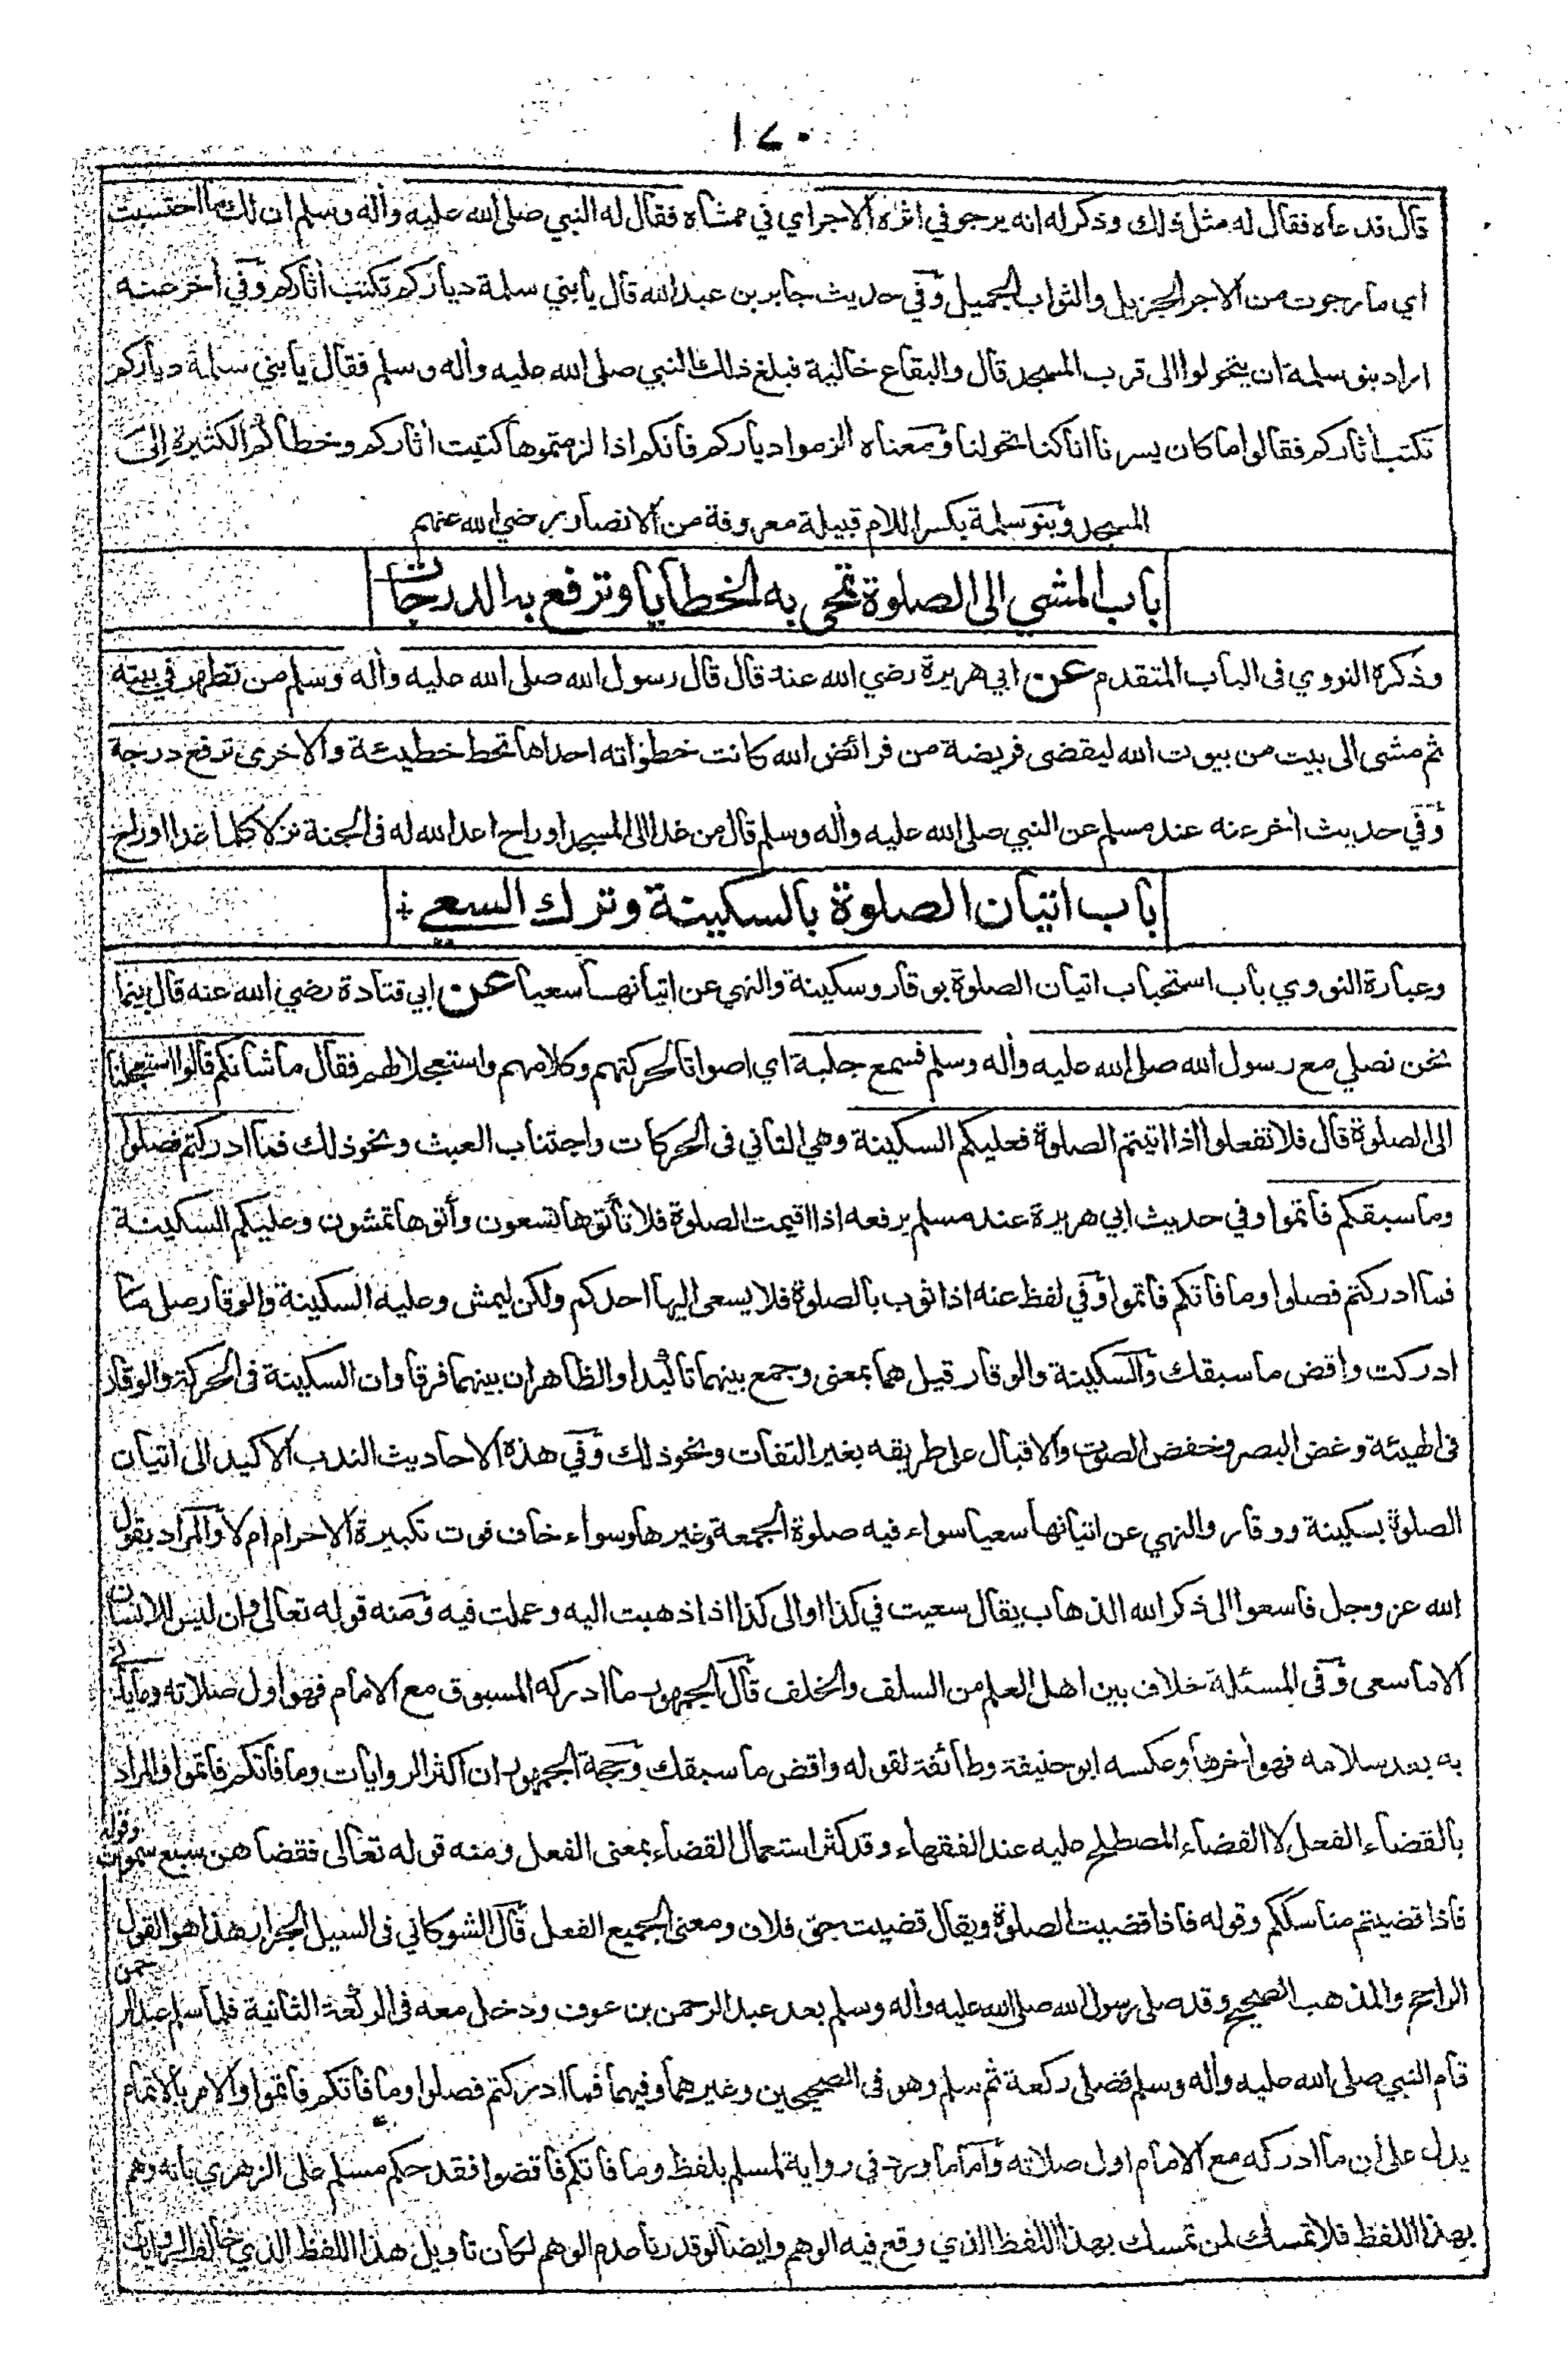 ١٧٠
قال فدعاه فقال له مثل ذلك وذكر له انه يرجو في اثره الاجر اي في ممشاه فقال له النبي صلى الله عليه وأله وسلم ان لك ما احتسبت
اي ما رجوت من الاجر الجزيل والثواب الجميل وفي حديث جابر بن عبد الله قال يا بني سلمة دياركم تكتب أثاركم وفي أخر عنه
اراد بنو سلمة ان يتحولوا الى قرب المسجد قال والبقاع خالية فبلغ ذلك النبي صلى الله عليه وأله وسلم فقال يا بني سلمة دياركم
تكتب أثاركم فقالوا ما كان يسرنا انا كنا تحولنا ومعناه الزموا دياركم فانكم اذا لزمتموها كتبت أثاركم وخطاكم الكثيرة إلى
المسجد وبنو سلمة بكسر اللام قبيلة معروفة من الانصار رضي الله عنهم
باب المشي الى الصلوة تمحى به الخطايا وترفع به الدرجات
وذكره النووي فى الباب المتقدم عن ابي هريرة رضي الله عنه قال قال رسول الله صلى الله عليه وأله وسلم من تطهر في بيته
ثم مشى الى بيت من بيوت الله ليقضى فريضة من فرائض الله كانت خطوتاه احداها تحط خطيئة والاخرى ترفع درجة
وفي حديث أخر عنه عند مسلم عن النبي صلى الله عليه وأله وسلم قال من غدا الى المسجد او راح اعد الله له فى الجنة نزلا كلما غدا اوراح
باب اتيان الصلوة بالسكينة وترك السعي
وعبارة النووي باب استحباب اتيان الصلوة بوقار وسكينة والنهي عن اتيانها سعيا عن ابي قتادة رضي الله عنه قال بينما
نحن نصلي مع رسول الله صلى الله عليه وأله وسلم فسمع جلبة اي اصواتا لحركتهم وكلامهم واستعجلا لهم فقال ما شانكم قالوا استعجلنا
الى الصلوة قال فلا تفعلوا اذا اتيتم الصلوة فعليكم السكينة وهي التاني فى الحركات واجتناب العبث ونحو ذلك فما ادركتم فصلوا
وما سبقكم فاتموا وفي حديث ابي هريرة عند مسلم يرفعه اذا اقيمت الصلوة فلا تأتوها تسعون وأتوها تمشون وعليكم السكينة
فما ادركتم فصلوا وما فاتكم فاتموا وفي لفظ عنه اذا ثوب بالصلوة فلا يسعى اليها احدكم ولكن ليمش وعليه السكينة والوقار صل ما
ادركت واقض ما سبقك والسكينة والوقار قيل هما بمعنى وجمع بينهما تاكيدا والظاهر ان بينهما فرقا وان السكينة فى الحركة والوقار
فى الهيئة وغض البصر وخفض الصوت والاقبال على طريقه بغير التفات ونحو ذلك وفي هذه الاحاديث الندب الاكيد الى اتيان
الصلوة بسكينة ووقار والنهي عن اتيانها سعيا سواء فيه صلوة الجمعة وغيرها وسواء خاف فوت تكبيرة الاحرام ام لا والمراد بقول
الله عز وجل فاسعوا الى ذكر الله الذهاب يقال سعيت في كذا او الى كذا اذا ذهبت اليه وعملت فيه ومنه قوله تعالى وان ليس للانسان
الا ما سعى وفى المسئلة خلاف بين اهل العلم من السلف والخلف قال الجمهور ما ادركه المسبوق مع الامام فهو اول صلاته وما يأتي
به بعد سلامه فهو أخرها وعكسه ابو حنيفة وطائفة لقوله واقض ما سبقك وحجة الجمهور ان اكثر الروايات وما فاتكم فاتموا والمراد
بالقضاء الفعل لا القضاء المصطلح عليه عند الفقهاء وقد كثر استعمال القضاء بمعنى الفعل ومنه قوله تعالى فقضاهن سبع سموات وقوله
فاذا قضيتم مناسككم وقوله فاذا قضيت الصلوة ويقال قضيت حق فلان ومعنى الجميع الفعل قال الشوكاني فى السيل الجرار هذا هو القول
الراجح والمذهب الصحيح وقد صلى رسول الله صلى الله عليه واله وسلم بعد عبد الرحمن بن عوف ودخل معه فى الركعة الثانية فلما سلم عبد الرحمن
قام النبي صلى الله عليه وأله وسلم فصلى ركعة ثم سلم وهو فى الصحيحين وغيرهما وفيهما فما ادركتم فصلوا وما فاتكم فاتموا والامر بالاتمام
يدل على أن ما ادركه مع الامام اول صلاته وأما ما ورد في رواية لمسلم بلفظ وما فاتكم فاقضوا فقد حكم مسلم على الزهري بانه وهم
بهذا اللفظ فلا تمسك لمن تمسك بهذا اللفظ الذي وقع فيه الوهم وايضا لو قدرنا عدم الوهم لكان تاويل هذا اللفظ الذي خالف الروايات